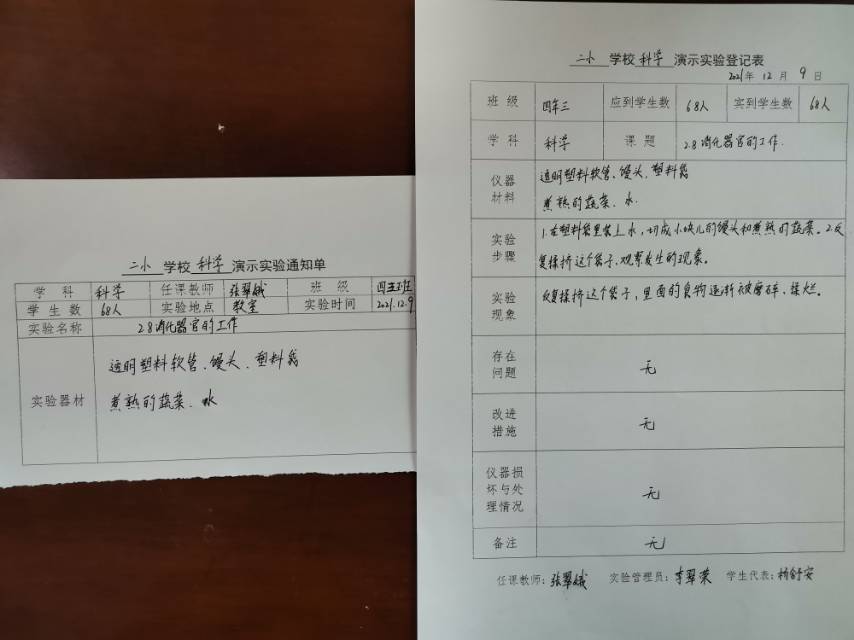 二小 学校 科学 演示实验通知单
学 科 科学 任课教师 张翠娥 班 级 四五班
学生数 68人 实验地点 教室 实验时间 2021.12.9
实验名称 2.8消化器官的工作
实验器材 透明塑料软管、馒头、塑料袋
煮熟的蔬菜、水
二小 学校 科学 演示实验登记表
2021年 12 月 9 日
班 级 四年三 应到学生数 68人 实到学生数 68人
学 科 科学 课 题 2.8消化器官的工作.
仪器材料 透明塑料软管、馒头、塑料袋
煮熟的蔬菜、水.
实验步骤 1.在塑料袋里装上水,切成小块儿的馒头和煮熟的蔬菜。2.反
复揉挤这个袋子,观察发生的现象。
实验现象 反复揉挤这个袋子,里面的食物逐渐被磨碎、揉烂。
存在问题 无
改进措施 无
仪器损坏与处理情况 无
备注 无
任课教师:张翠娥 实验管理员:李翠荣 学生代表:杨舒安